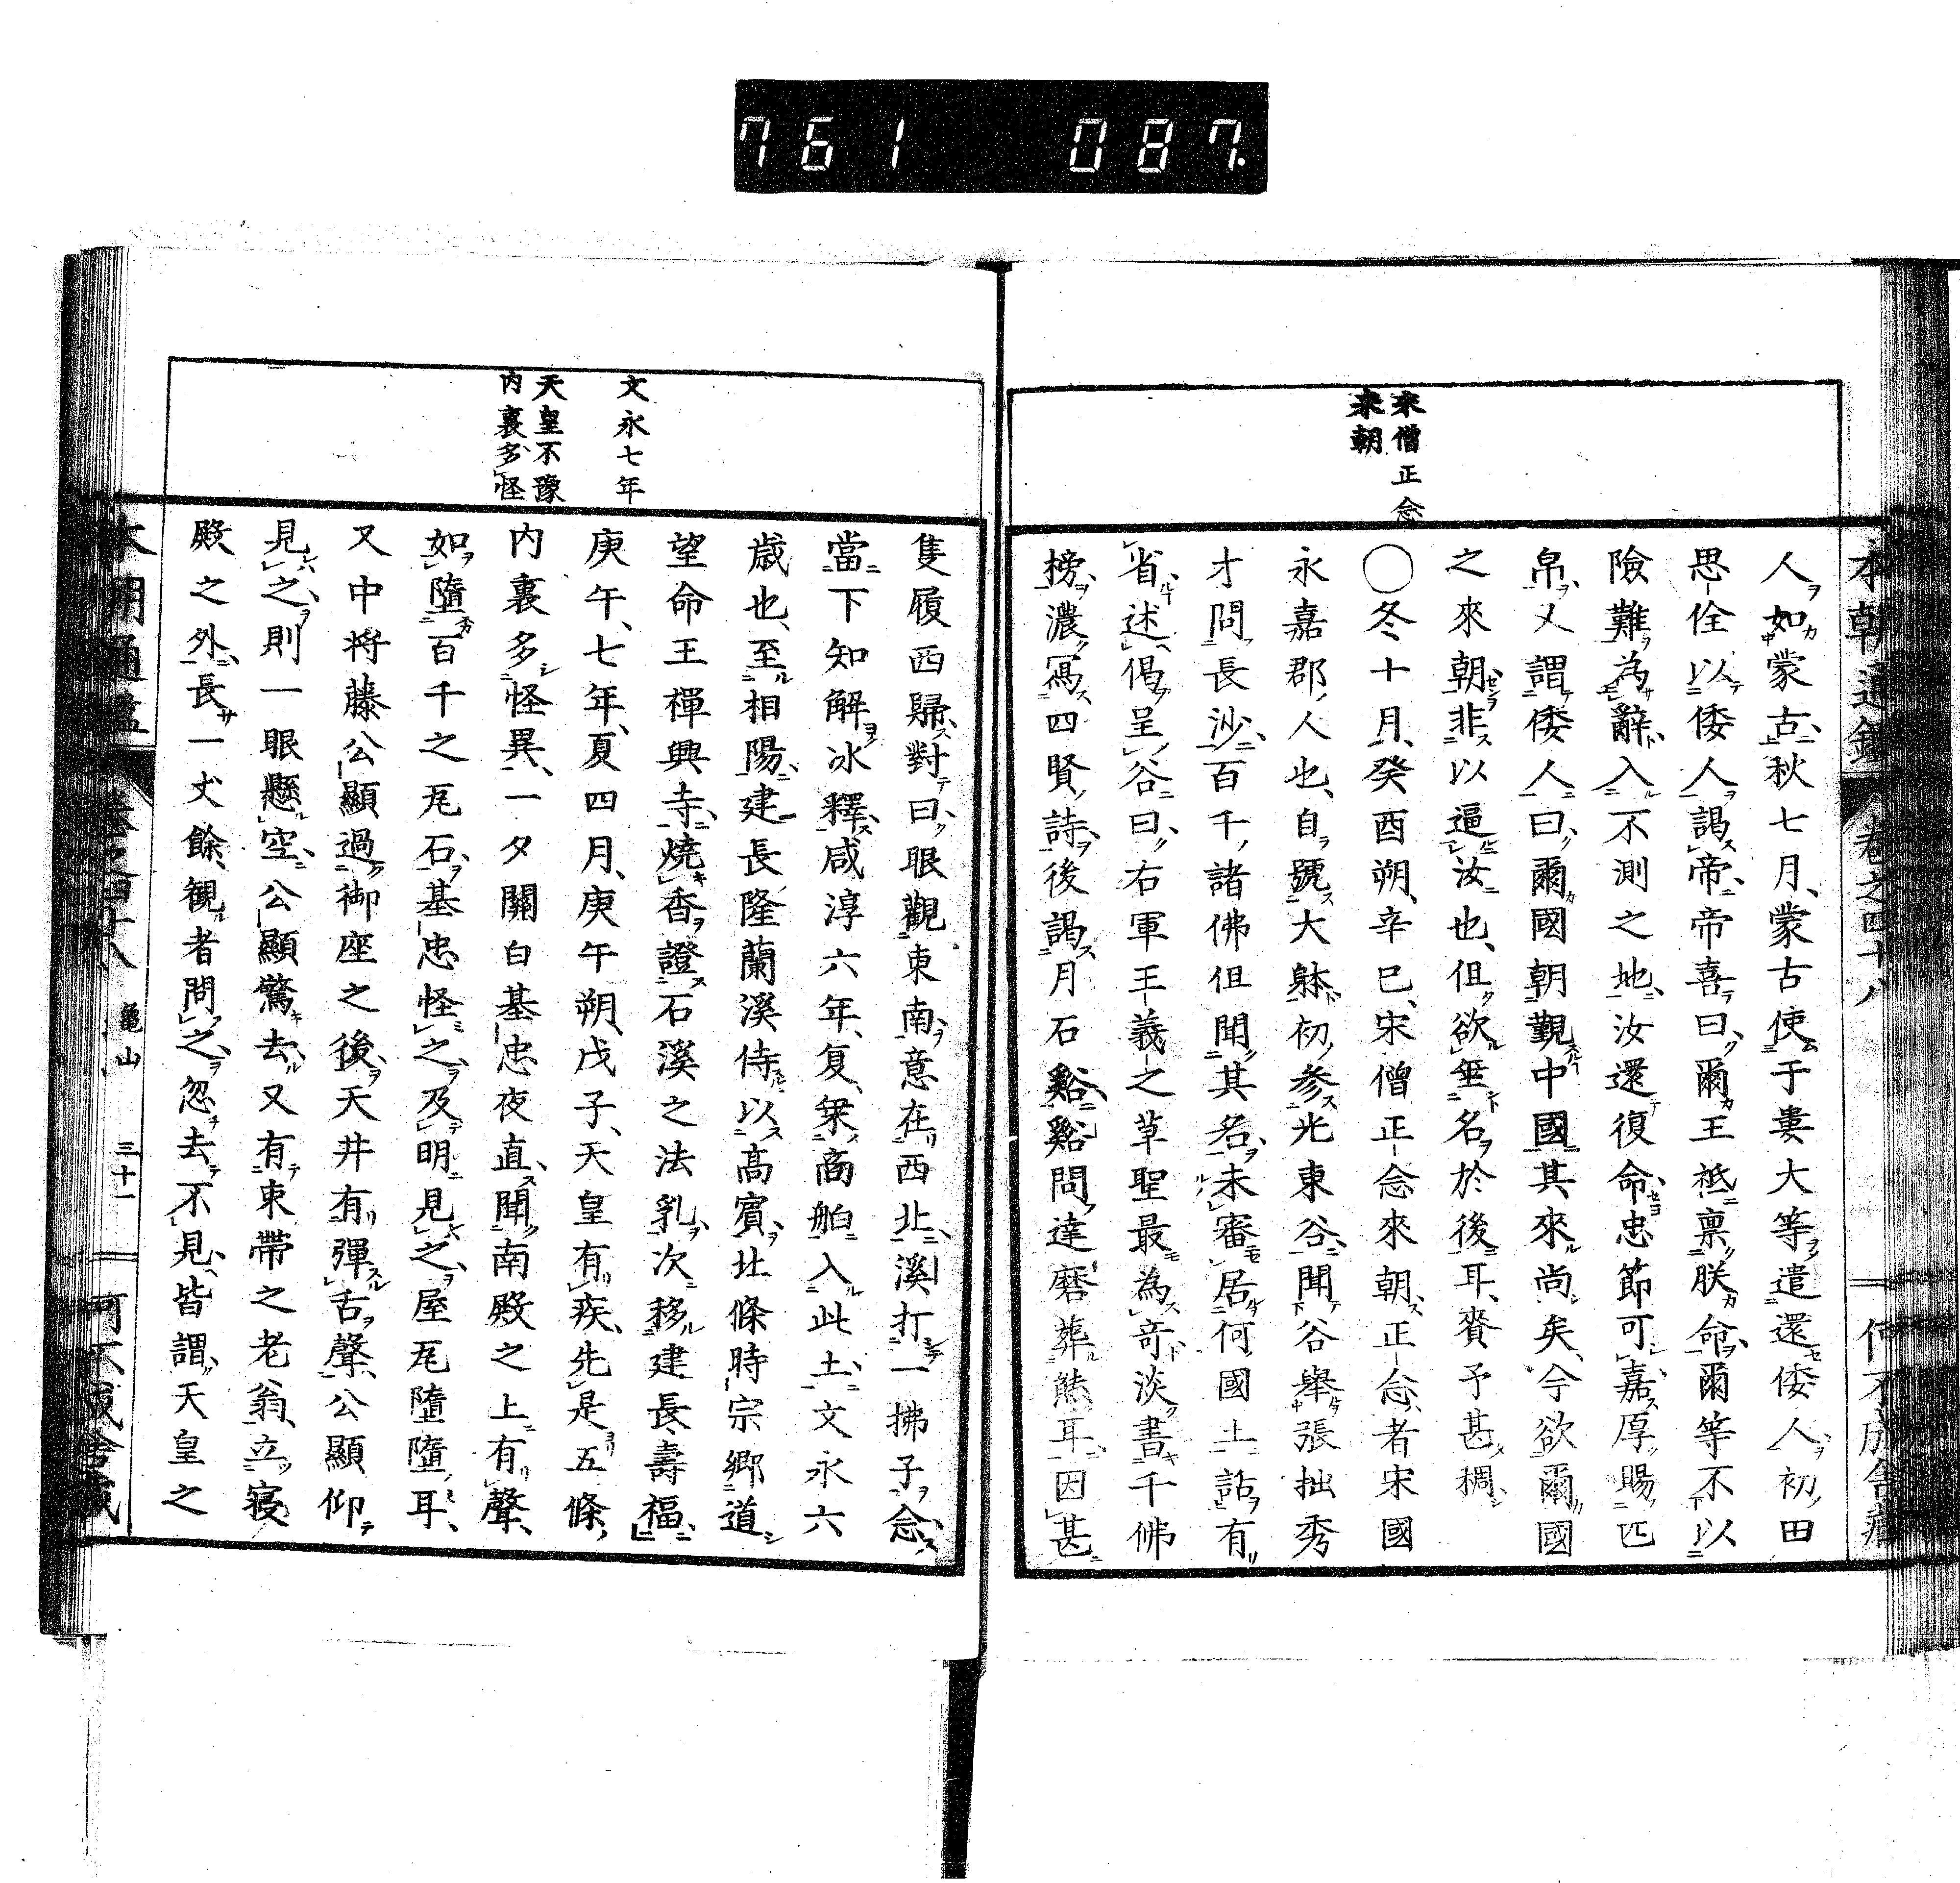 761 087.
本朝通鑑 卷之四十八 何不成舎藏
宋僧正念
来朝
人如蒙古秋七月蒙古使于婁大等遣還倭人初田
思佺以倭人謁帝帝喜曰爾王祗禀朕命爾等不以
險難為辭入不測之地汝還復命忠節可嘉厚賜匹
帛又謂倭人曰爾國朝覲中國其來尚矣今欲爾國
之來朝非以逼汝也但欲垂名於後耳賚予甚稠
○冬十月癸酉朔辛巳宋僧正念來朝正念者宋國
永嘉郡人也自號大躰初参光東谷聞谷舉張拙秀
才問長沙百千諸佛但聞其名未審居何國土話有
省述偈呈谷曰右軍王義之草聖最為竒淡書千佛
榜濃寫四賢詩後謁月石谿谿問達磨葬熊耳因甚
文永七年
天皇不豫
内裏多怪
隻履西歸對曰眼觀東南意在西北溪打一拂子念
當下知解冰釋咸淳六年夏乗商舶入此土文永六
歳也至相陽建長隆蘭溪侍以髙賓北條時宗郷道
望命王禪興寺燒香證石溪之法乳次移建長壽福
庚午七年夏四月庚午朔戊子天皇有疾先是五條
内裏多怪異一夕關白基忠夜直聞南殿之上有聲
如墮百千之瓦石基忠怪之及明見之屋瓦墮墮耳
又中将藤公顯過御座之後天井有彈舌聲公顯仰
見之則一眼懸空公顯驚去又有束帶之老翁立寝
殿之外長一丈餘觀者問之忽去不見皆謂天皇之
本朝通鑑 卷之四十八 亀山 三十一 何不成舎藏